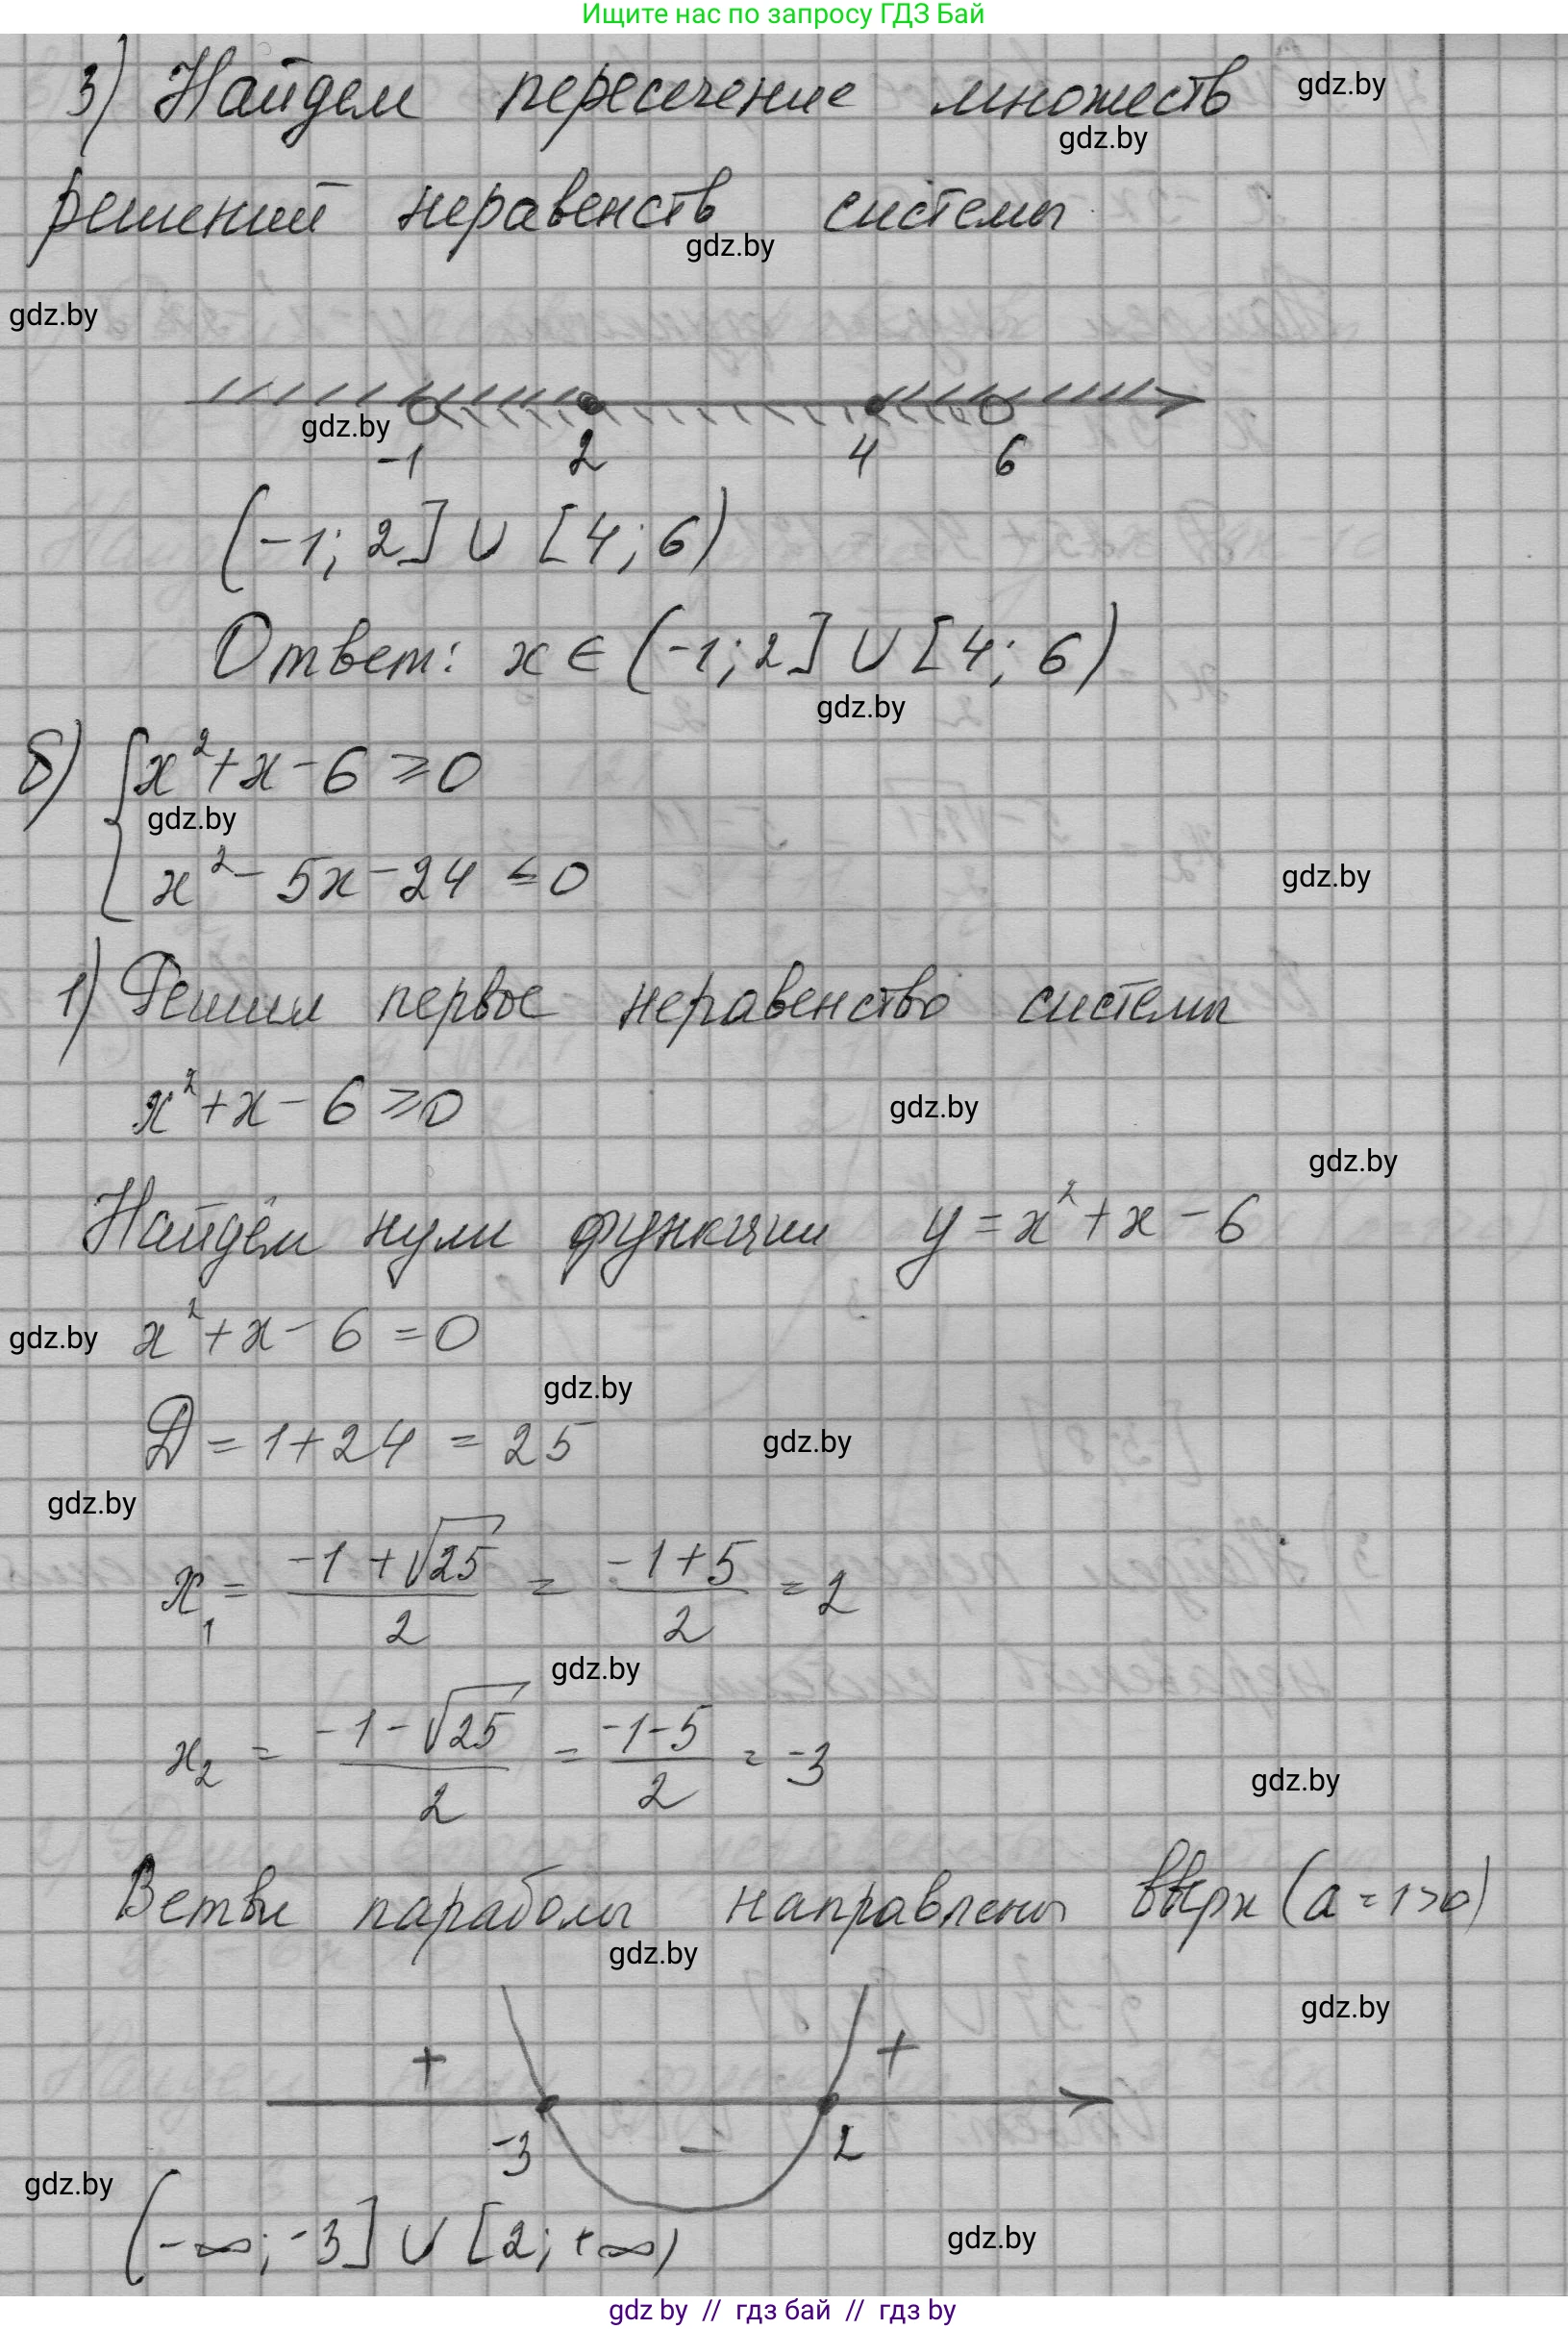 Ищите нас по запросу ГДЗ Бай
3) Найдем пересечение множеств
gdz.by
gdz.by
решений неравенств системы
gdz.by
gdz.by
gdz.by
-1 2 4 6
(-1; 2] ∪ [4; 6)
Ответ: x ∈ (-1; 2] ∪ [4; 6)
gdz.by
б) { x² + x - 6 ≥ 0
gdz.by
x² - 5x - 24 ≤ 0
gdz.by
1) Решим первое неравенство системы
x² + x - 6 ≥ 0
gdz.by
gdz.by
Найдём нули функции y = x² + x - 6
gdz.by
x² + x - 6 = 0
gdz.by
D = 1 + 24 = 25
gdz.by
gdz.by
x₁ = (-1 + √25)/2 = (-1 + 5)/2 = 2
gdz.by
x₂ = (-1 - √25)/2 = (-1 - 5)/2 = -3
gdz.by
Ветви параболы направлены вверх (a = 1 > 0)
gdz.by
gdz.by
+ +
-3 - 2
gdz.by
(-∞; -3] ∪ [2; +∞)
gdz.by
gdz.by // гдз бай // гдз by